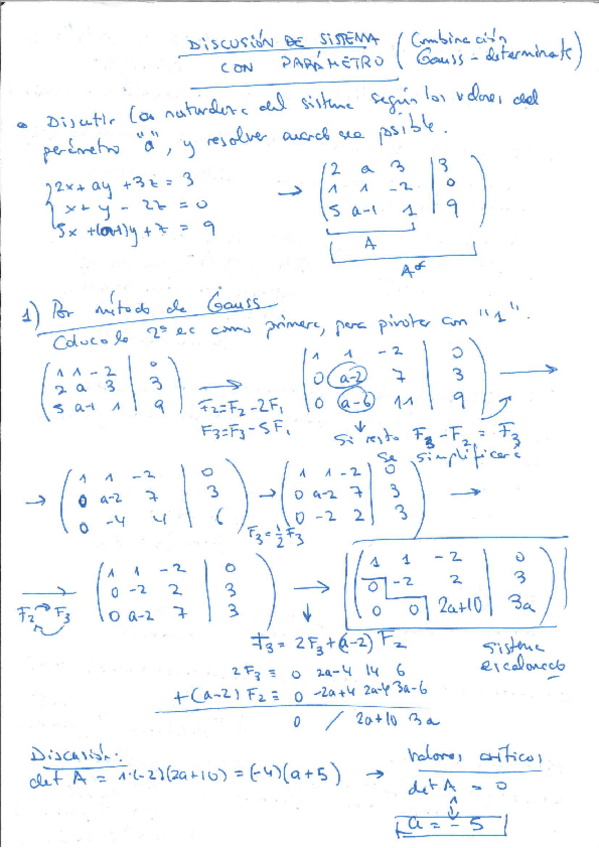 DISCUSIÓN DE SISTEMA
CON PARÁMETRO (Combinación Gauss-determinante)
• Discutir la naturaleza del sistema según los valores del
parámetro "a", y resolver cuando sea posible.
2x + ay + 3z = 3
x + y - 2z = 0
5x + (a-1)y + z = 9
→ ( 2 a 3 | 3
1 1 -2 | 0
5 a-1 1 | 9 )
A
A*
1) Por método de Gauss
Coloco la 2ª ec como primera, para pivotar con "1".
( 1 1 -2 | 0
2 a 3 | 3
5 a-1 1 | 9 )
→
F2=F2-2F1
F3=F3-5F1
( 1 1 -2 | 0
0 a-2 7 | 3
0 a-6 11 | 9 ) →
Si resto F3-F2 = F3
se simplificará
→ ( 1 1 -2 | 0
0 a-2 7 | 3
0 -4 4 | 6 )
→
F3=1/2 F3
( 1 1 -2 | 0
0 a-2 7 | 3
0 -2 2 | 3 ) →
→
F2 F3
( 1 1 -2 | 0
0 -2 2 | 3
0 a-2 7 | 3 )
→
( 1 1 -2 | 0
0 -2 2 | 3
0 0 2a+10 | 3a )
F3 = 2F3+(a-2)F2
2F3 ≡ 0 2a-4 14 6
+(a-2)F2 ≡ 0 -2a+4 2a-4 3a-6
0 / 2a+10 3a
sistema
escalonado
Discusión:
det A = 1·(-2)(2a+10) = (-4)(a+5) →
Valores críticos
det A = 0
a = -5